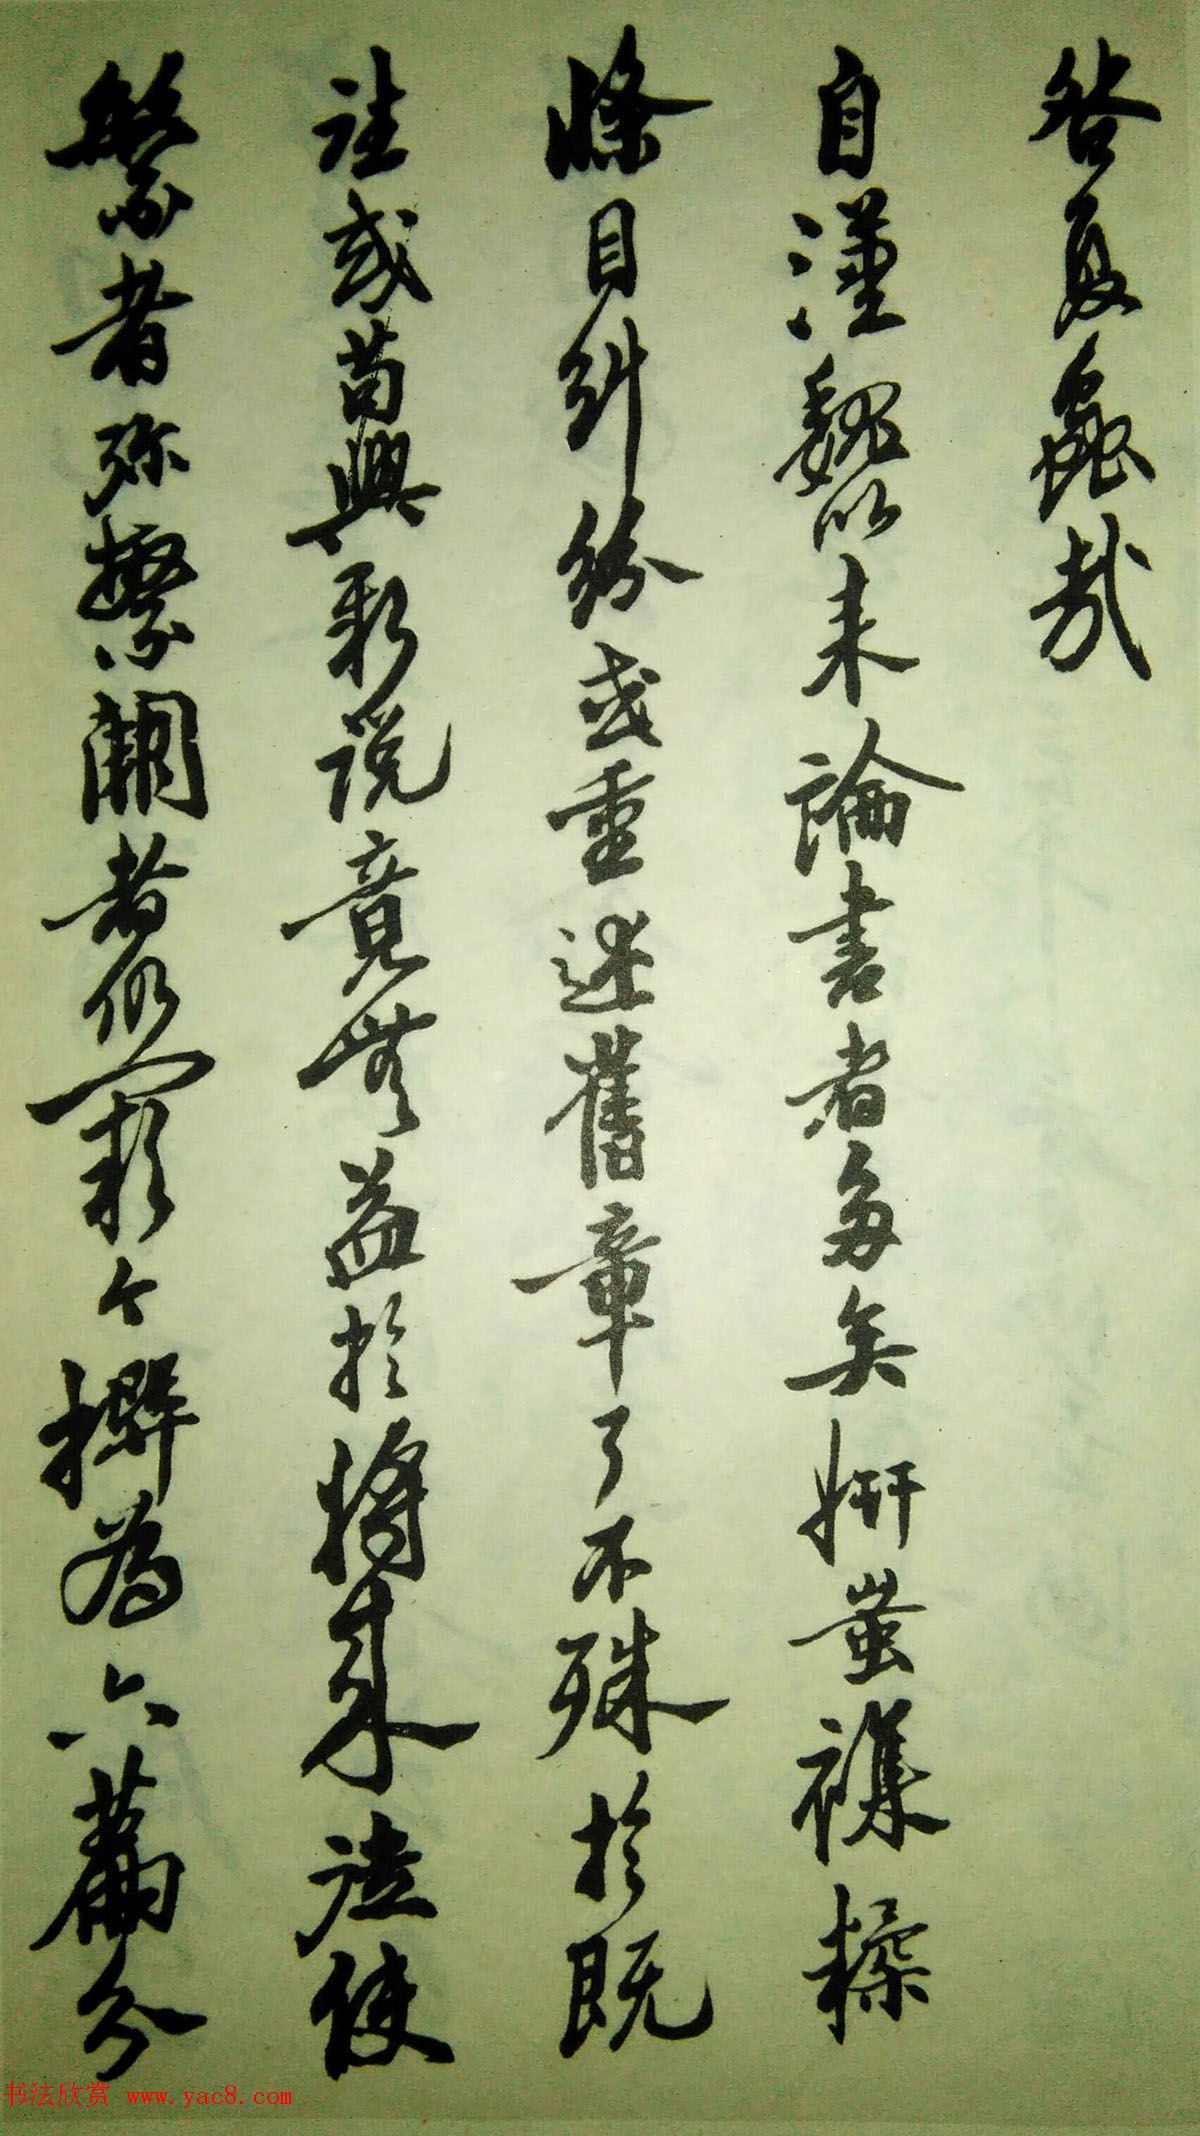 咎夏蟲哉
自漢魏以来論書者多矣妍蚩雜糅
條目糾紛或重述舊章了不殊於既
往或苟興新説竟無益於將来徒使
繁者彌繁闕者仍闕今撰為六篇分
书法欣赏 www.yac8.com